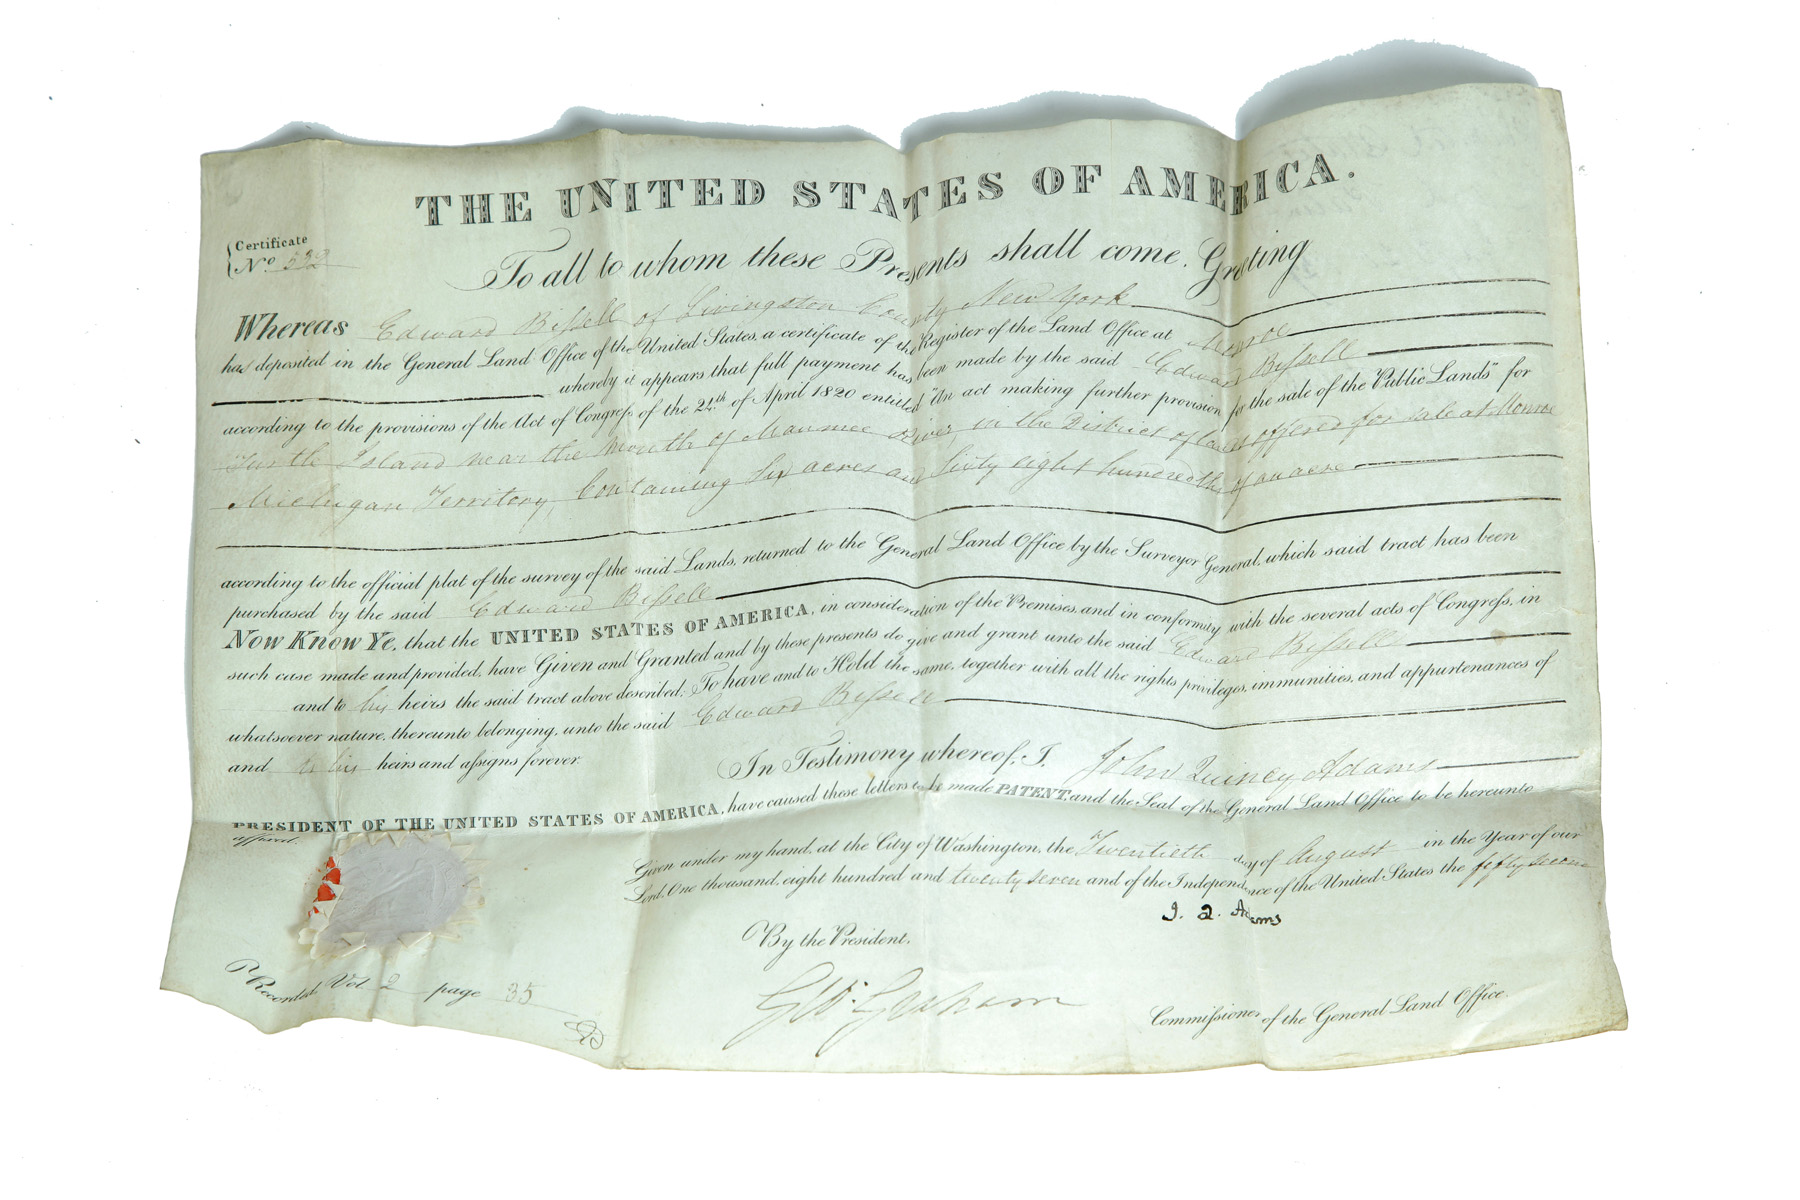 THE UNITED STATES OF AMERICA.
Certificate
No. 532
To all to whom these Presents shall come, Greeting
Whereas Edward Bissell of Livingston County New York
has deposited in the General Land Office of the United States, a certificate of the Register of the Land Office at Monroe
whereby it appears that full payment has been made by the said Edward Bissell
according to the provisions of the Act of Congress of the 24th of April 1820 entitled "An act making further provision for the sale of the Public Lands" for
Turtle Island near the Mouth of Maumee River, in the District of lands offered for sale at Monroe
Michigan Territory, Containing Six acres and Sixty eight hundredths of an acre
according to the official plat of the survey of the said Lands, returned to the General Land Office by the Surveyor General, which said tract has been
purchased by the said Edward Bissell
Now Know Ye, that the UNITED STATES OF AMERICA, in consideration of the Premises, and in conformity with the several acts of Congress, in
such case made and provided, have Given and Granted and by these presents do give and grant unto the said Edward Bissell
and to his heirs the said tract above described; To have and to Hold the same, together with all the rights, privileges, immunities, and appurtenances of
whatsoever nature, thereunto belonging, unto the said Edward Bissell
and to his heirs and assigns forever.
In Testimony whereof, I, John Quincy Adams
PRESIDENT OF THE UNITED STATES OF AMERICA, have caused these letters to be made PATENT, and the Seal of the General Land Office to be hereunto
affixed.
Given under my hand, at the City of Washington, the Twentieth day of August in the Year of our
Lord, One thousand, eight hundred and twenty seven and of the Independence of the United States the fifty second
J. Q. Adams
By the President,
Recorded, Vol. 2 page 35
G. W. Graham
Commissioner of the General Land Office.